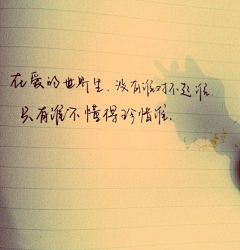 在爱的世界里，没有谁对不起谁，
只有谁不懂得珍惜谁.